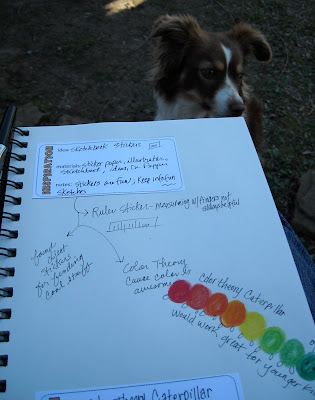 INSPIRATION
idea: sketchbook stickers
materials: sticker paper, illustrator,
sketchbook, ideas, on paper
notes: stickers are fun, keep info fun
sketches
Ruler Sticker - measuring w/ fingers not
always helpful
found
object
stickers
for finding
cool stuff
Color Theory
cause color is
awesome
Color theory Caterpillar
Would work great for younger
Theory Caterpillar